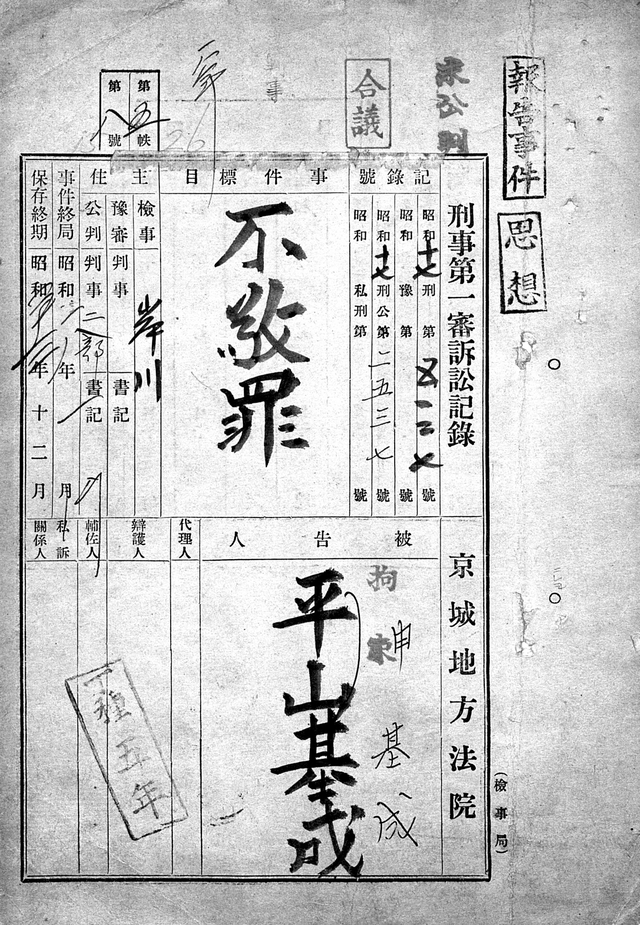 報告事件
思想
合議
第五帙
第八號
刑事第一審訴訟記錄
京城地方法院
(檢事局)
記錄號
昭和十七刑第五一二七號
昭和 豫第 號
昭和十七刑公第二五三七號
昭和 私刑第 號
事件標目
不敬罪
主任
檢事 岸川
豫審判事 書記
公判判事 二部 書記
事件終局 昭和 八年 月
保存終期 昭和 年十二月
被告人
拘束
平山基成
申基成
代理人
辯護人
輔佐人
私訴
關係人
丁種五年